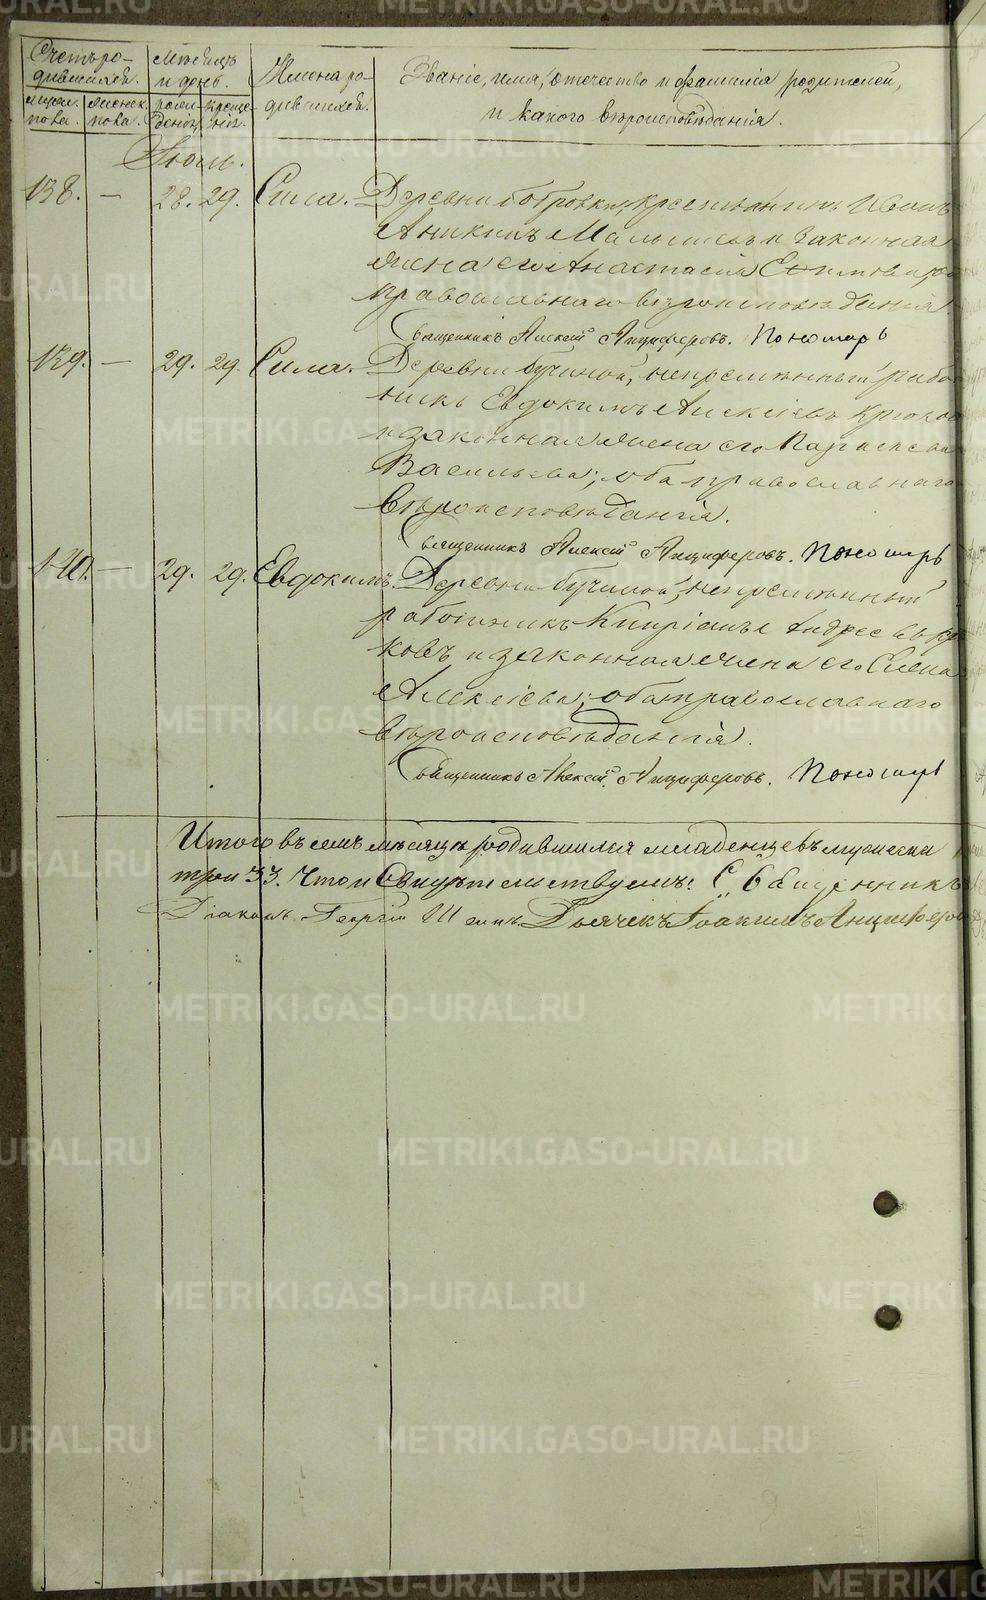 Счетъ ро-
дившихся.
Мѣсяцъ
и день.
Имена ро-
дившихся.
Званіе, имя, отчество и фамилія родителей,
и какого вѣроисповѣданія.
Мужеск.
пола.
Женск.
пола.
рожде-
нія.
креще-
нія.
Іюль.
138. — 28. 29. Сила. Деревни Бобровки, крестьянинъ Иванъ
Аникинъ и законная
жена его Анастасія Ефимова
православнаго вѣроисповѣданія.
Священникъ Алексій Анциферовъ. Пономарь
139. — 29. 29. Сила. Деревни Бучиной, непремѣнный рабо
никъ Евдокимъ Алексѣевъ Крюков
и законная жена его
Васильева; оба православнаго
вѣроисповѣданія.
Священникъ Алексій Анциферовъ. Пономарь
140. — 29. 29. Евдокимъ. Деревни Бучиной, непремѣнный
работникъ Кипріанъ Андреевъ
ковъ и законная жена его Елена
Алексіева; оба православнаго
вѣроисповѣданія.
Священникъ Алексій Анциферовъ. Пономарь
Итого въ семъ мѣсяцѣ родившихся младенцевъ мужеска
33. Что и свидѣтельствуемъ: Священникъ
Діаконъ Георгій Дьячекъ Іоакимъ Анциферо
METRIKI.GASO-URAL.RU